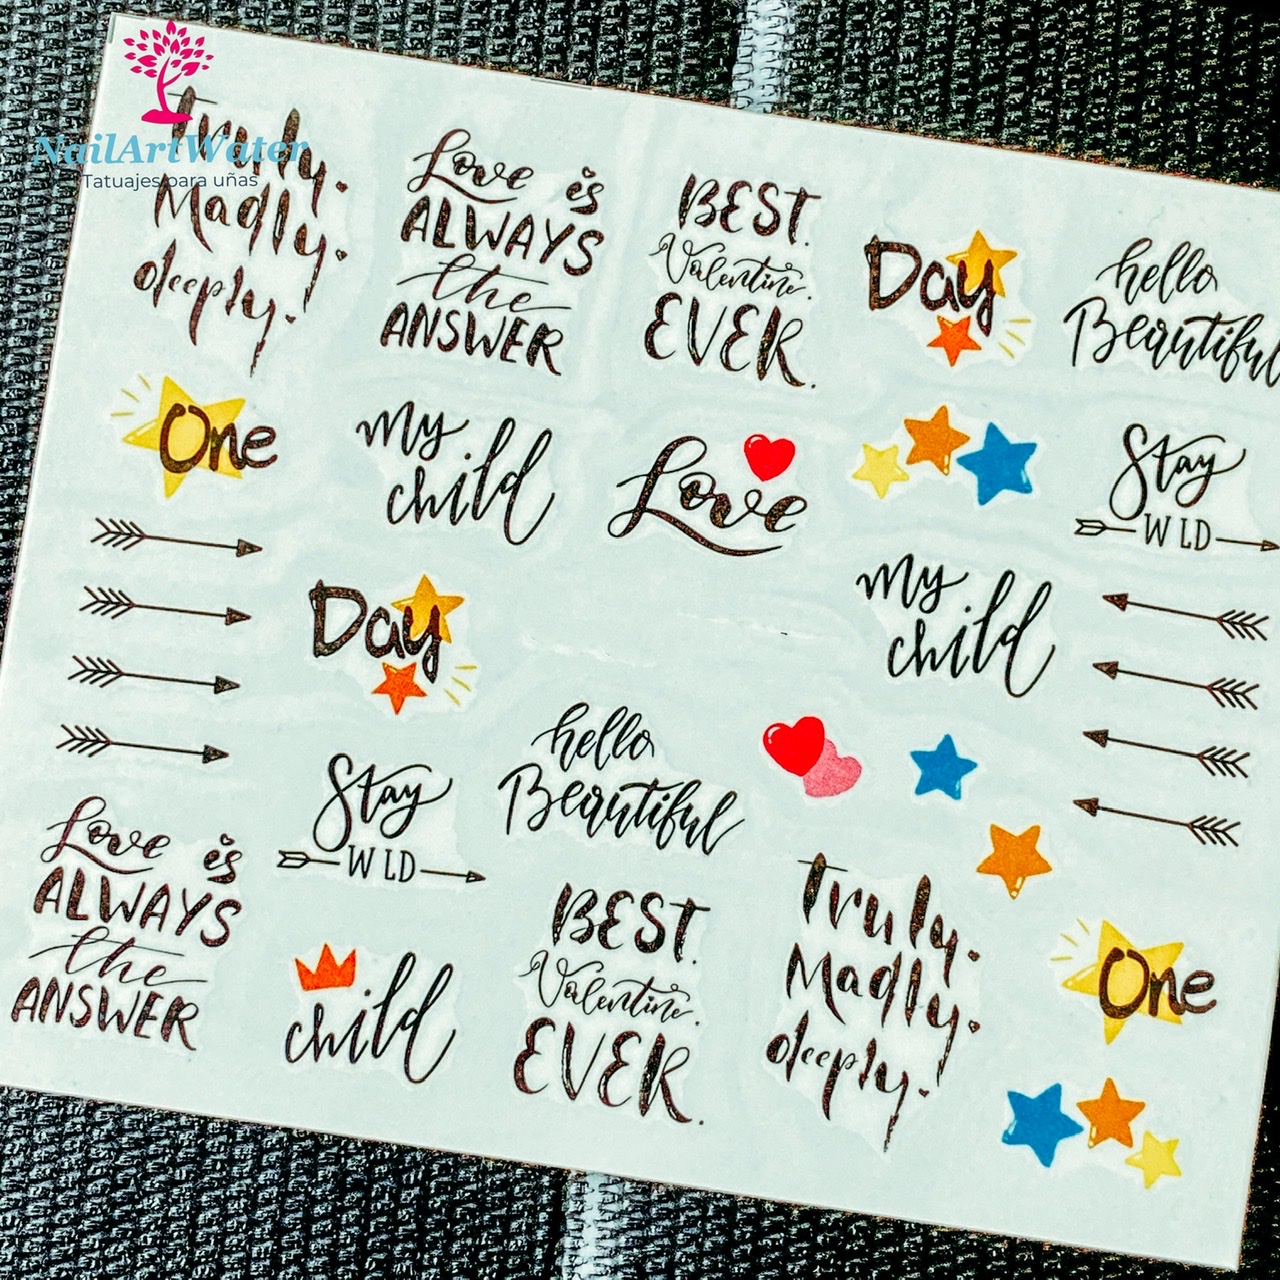 NailArtWater
Tatuajes para uñas
Truly.
Madly.
deeply.
Love is
ALWAYS
the
ANSWER
BEST.
Valentine.
EVER.
Day
hello
Beautiful
One
my
child
Love
Stay
W LD
Day
my
child
hello
Beautiful
Stay
W LD
Love is
ALWAYS
the
ANSWER
child
BEST.
Valentine.
EVER.
Truly.
Madly.
deeply.
One